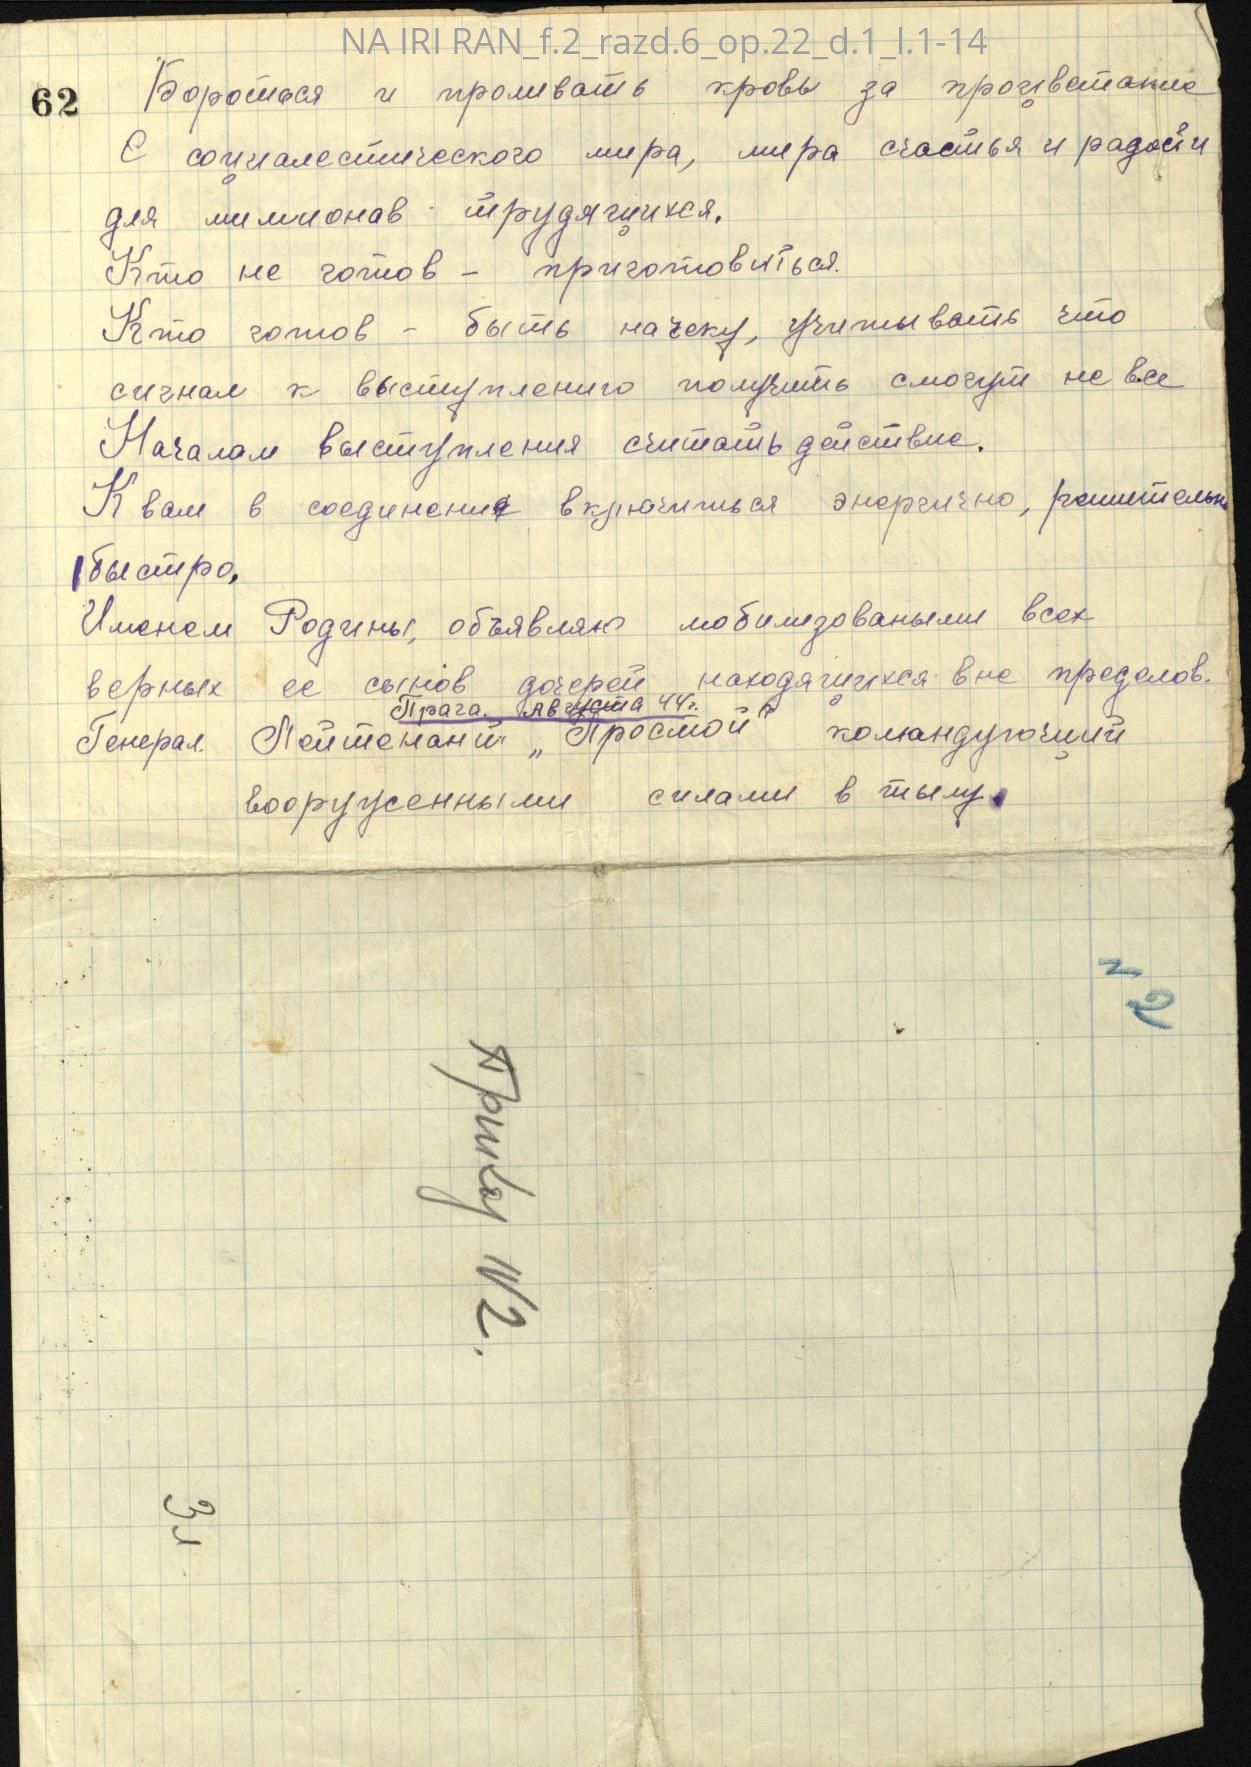 NA IRI RAN_f.2_razd.6_op.22_d.1_l.1-14
62
Бороться и проливать кровь за процветание
С социалестического мира, мира счастья и радости
для милионав трудящихся.
Кто не готов - приготовиться.
Кто готов - быть начеку, учитывать что
сигнал к выступлению получить смогут не все
Началам выступления считать действие.
К вам в соединения включиться энергично, решительно
быстро.
Именем Родины, объявляю мобилизоваными всех
верных ее сынов дочерей находящихся вне пределов.
Прага. Августа 44г.
Генерал Лейтенант „Простой" командующий
вооруженными силами в тылу.
N 2
N2.
3л